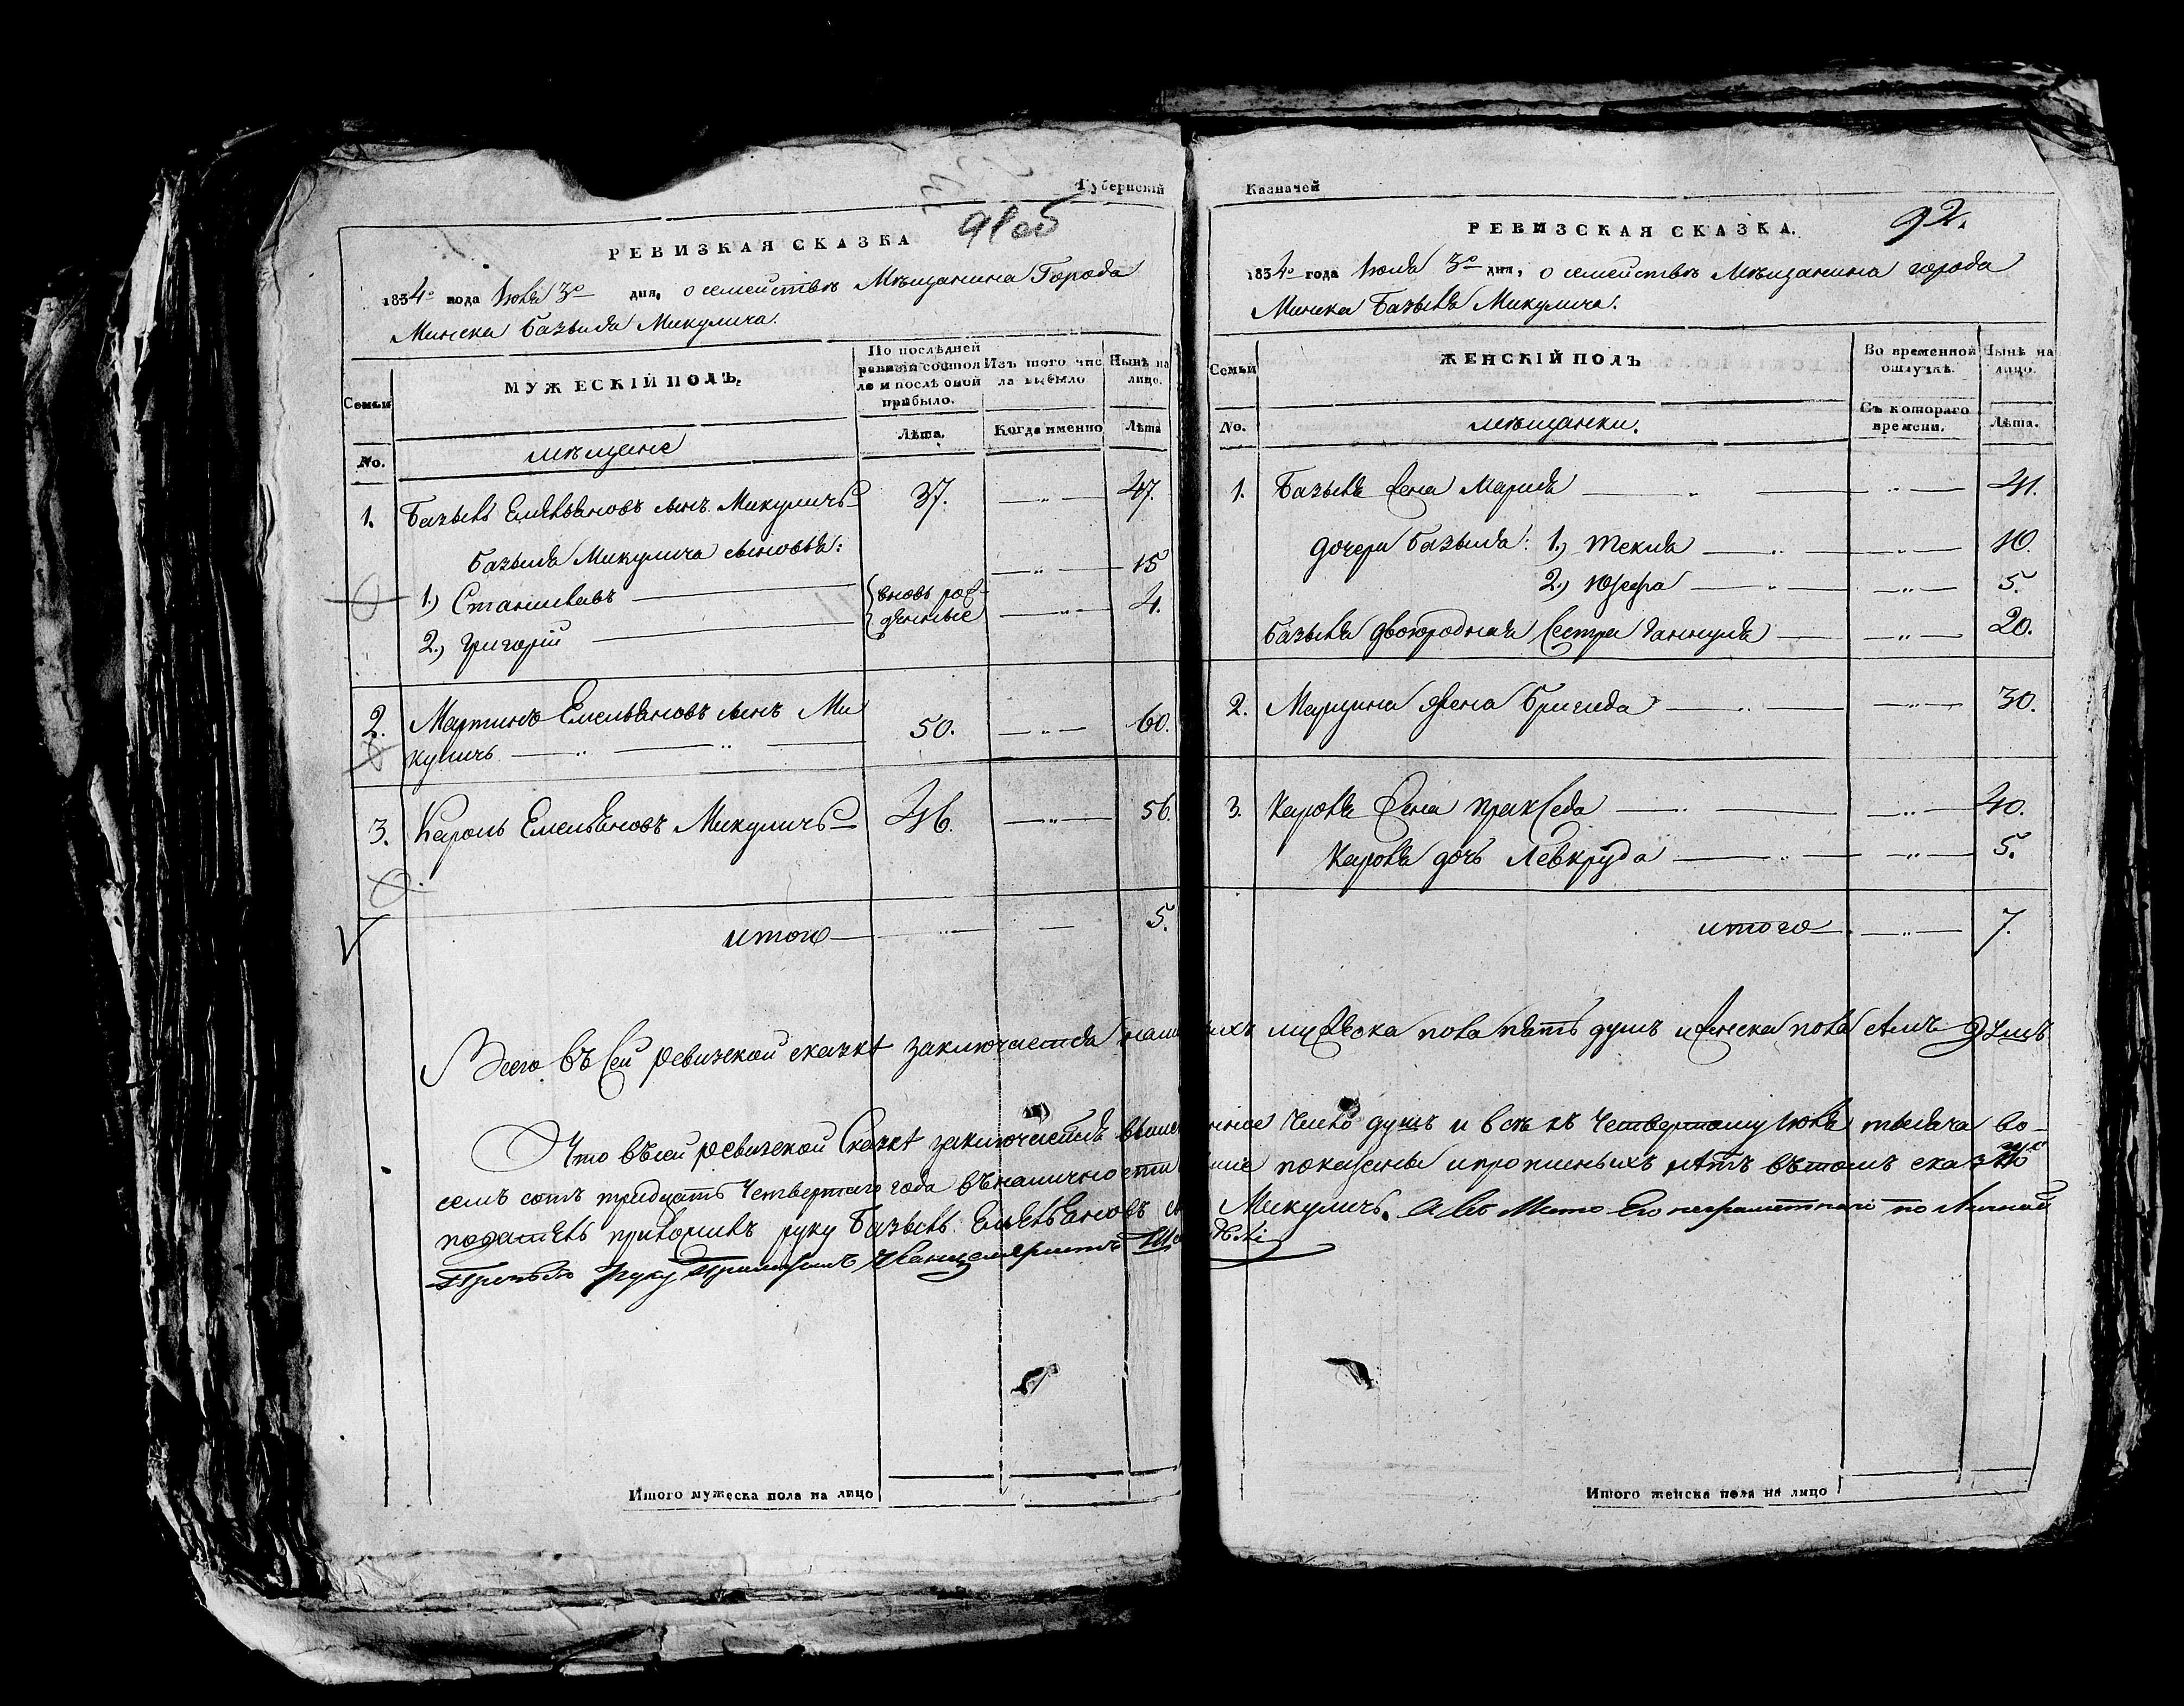 Губернскій
91об
РЕВИЗКАЯ СКАЗКА
1834го года Іюля 3го дня, о семействѣ Мѣщанина Города
Минска Базыля Микулича.
Семьи
МУЖЕСКІЙ ПОЛЪ.
По послѣдней
ревизіи состоя
ло и послѣ оной
прибыло.
Изъ того чис
ла выбыло
Нынѣ на
лицо.
No.
мѣщане
Лѣта.
Когда именно
Лѣта
1. Базыль Емельяновъ сынъ Микуличъ 37. —„— 47.
Базыля Микулича сыновья:
1.) Станиславъ вновь рож- —„— 15
2.) Григорій денные —„— 4.
2. Мартинъ Емельяновъ сынъ Ми
куличъ —„— —„— 50. —„— 60.
3. Кароль Емельяновъ Микуличъ 46. —„— 56.
итого —„— — 5.
Казначей
92.
РЕВИЗСКАЯ СКАЗКА.
1834го года Іюля 3го дня, о семействѣ Мѣщанина города
Минска Базыля Микулича.
Семьи
ЖЕНСКІЙ ПОЛЪ
Во временной
отлучкѣ.
Нынѣ на
лицо.
No.
мѣщанки.
Съ котораго
времени.
Лѣта.
1. Базыля жена Марыя —„— —„— 41.
дочери Базыля: 1.) Текля —„— —„— 10.
2.) Юзефа —„— —„— 5.
Базыля двоюродная сестра Ганнуля — —„— 20.
2. Марцина жена Бригида —„— —„— 30.
3. Кароля жена Пракседа —„— —„— 40.
Кароля дочь —„— —„— 5.
итого — —„— 7.
Всего въ сей ревизской сказкѣ заключается мужеска пола пять душъ и женска пола семь душъ
Что въ сей ревизской сказкѣ заключается число душъ и всѣ къ четвертому Іюля тысяча во-
семь сотъ тридцать четвертаго года въ наличности показаны и прописныхъ нѣтъ въ томъ
податель приложилъ руку Базыль Емельяновъ Микуличъ. а вѣсто его неграматнаго по личной
прозьбѣ руку приложилъ Канцеляристъ
Итого мужеска пола на лицо
Итого женска пола на лицо